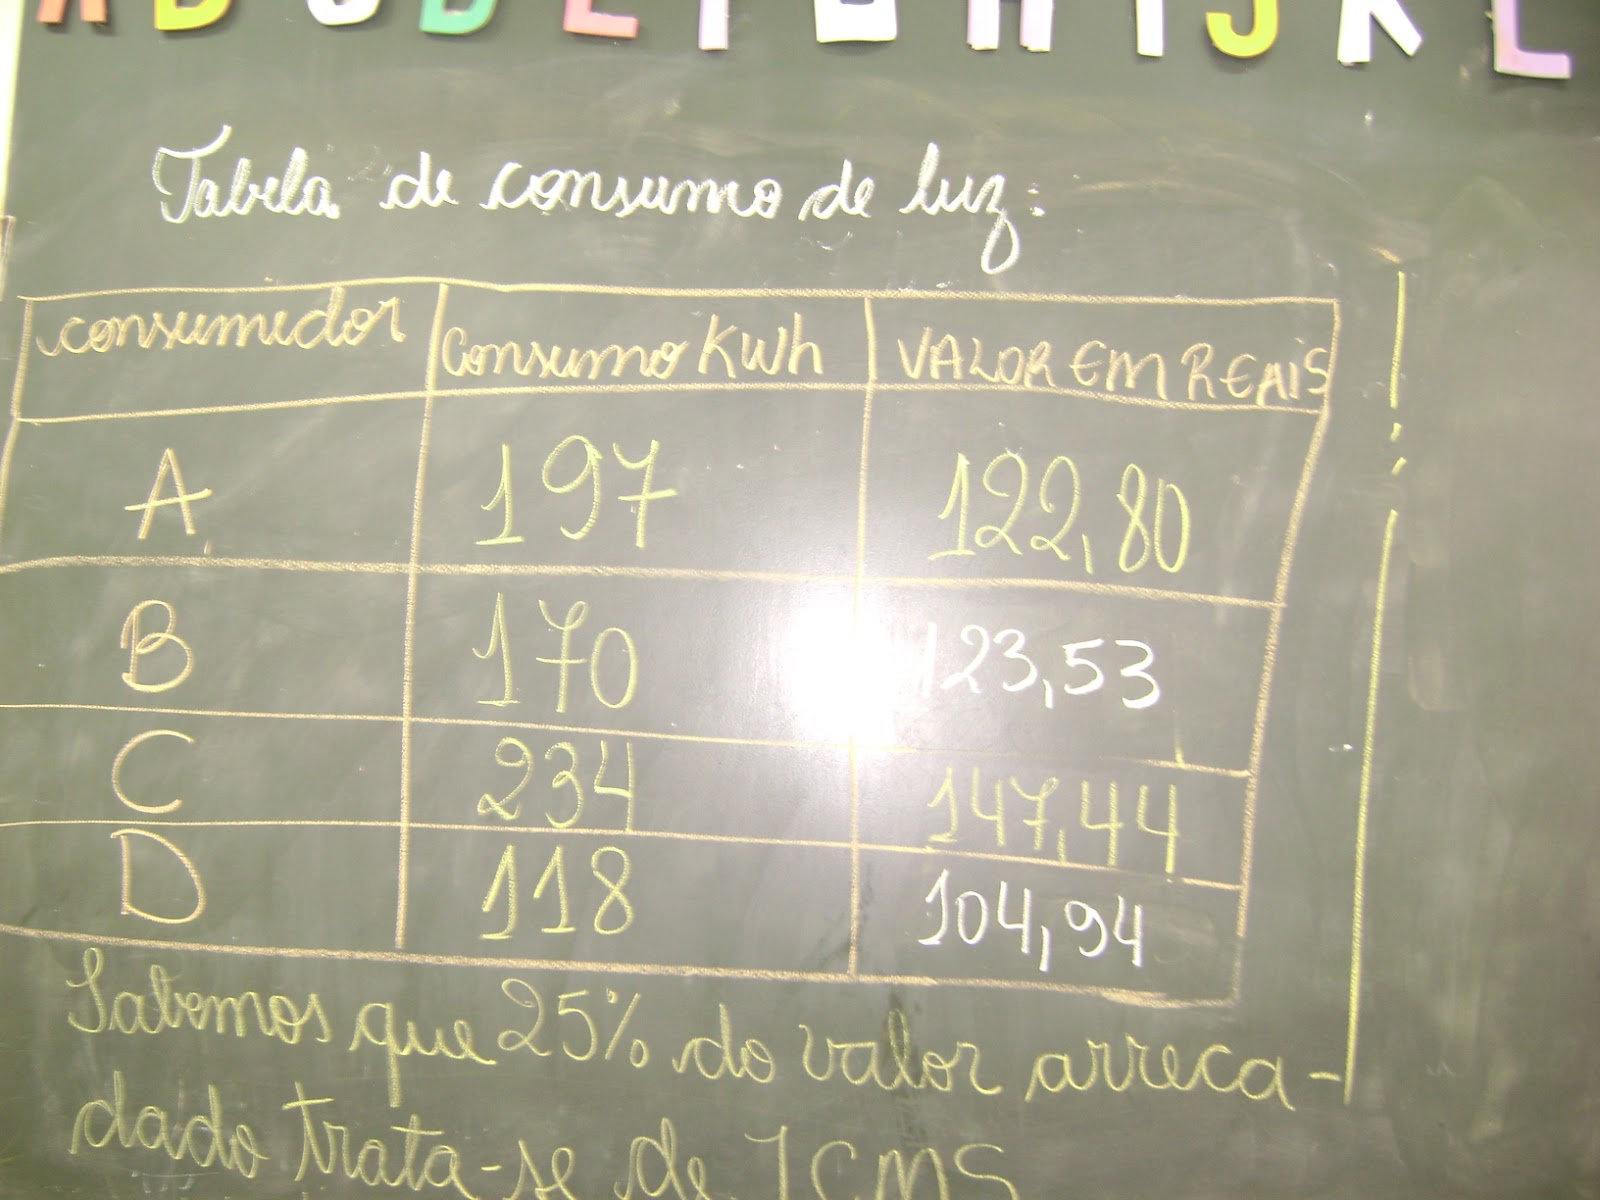 A B C D E F G H I J K L
Tabela de consumo de luz:
consumidor consumo KWh VALOR EM REAIS
A 197 122,80
B 170 123,53
C 234 147,44
D 118 104,94
Sabemos que 25% do valor arreca-
dado trata-se de ICMS